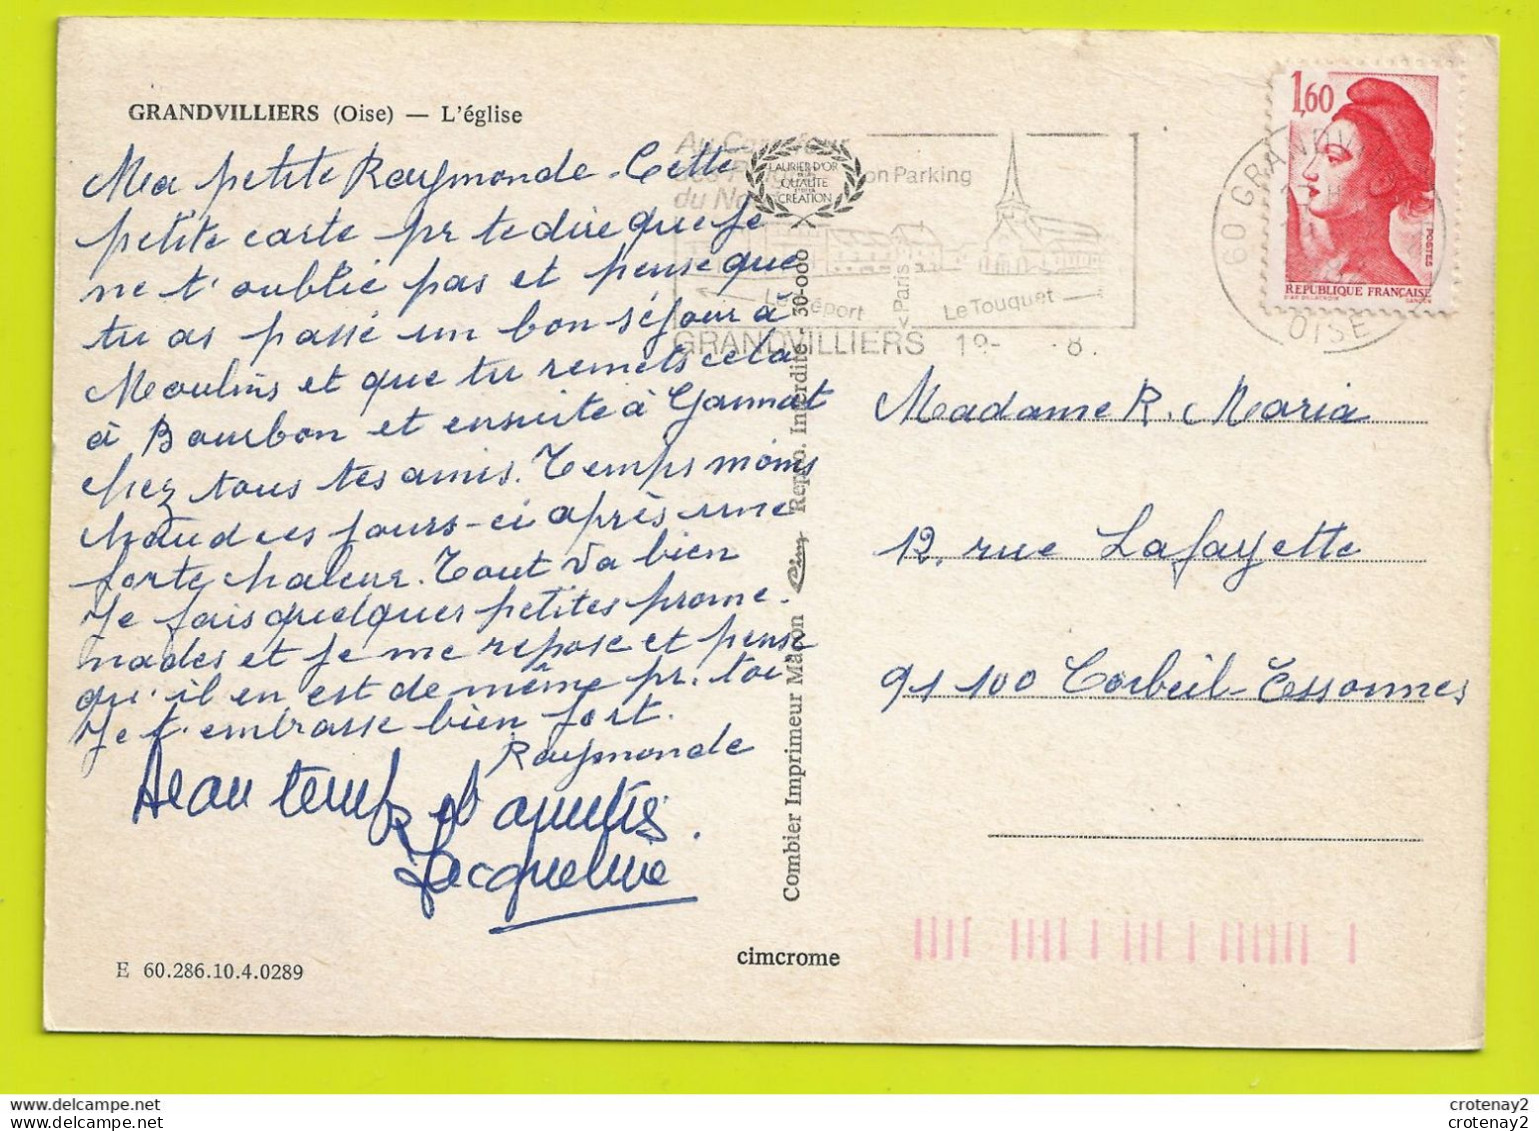 GRANDVILLIERS (Oise) — L'église
Ma petite Raymonde - Cette
petite carte pr te dire que je
ne t'oublie pas et pense que
tu as passé un bon séjour à
Moulins et que tu remets cela
à Bourbon et ensuite à Gannat
chez tous tes amis. Temps moins
chaud ces jours-ci après une
forte chaleur. Tout va bien
Je fais quelques petites prome-
nades et je me repose et pense
qu'il en est de même pr. toi
Je t'embrasse bien fort.
Raymonde
Beau temps et amitiés.
Jacqueline
E 60.286.10.4.0289
cimcrome
Combier Imprimeur Mâcon Cim Repro. Interdite - 30-000
LAURIER D'OR
DE LA
QUALITÉ
CRÉATION
Au Carrefour
du
on Parking
Le Tréport
< Paris
Le Touquet
GRANDVILLIERS 19- 8.
60 GRANDVI
OISE
1,60
POSTES
RÉPUBLIQUE FRANÇAISE
D'AP. DELACROIX GANDON
Madame R. Maria
12. rue Lafayette
91100 Corbeil-Essonnes
crotenay2
crotenay2
crotenay2
crotenay2